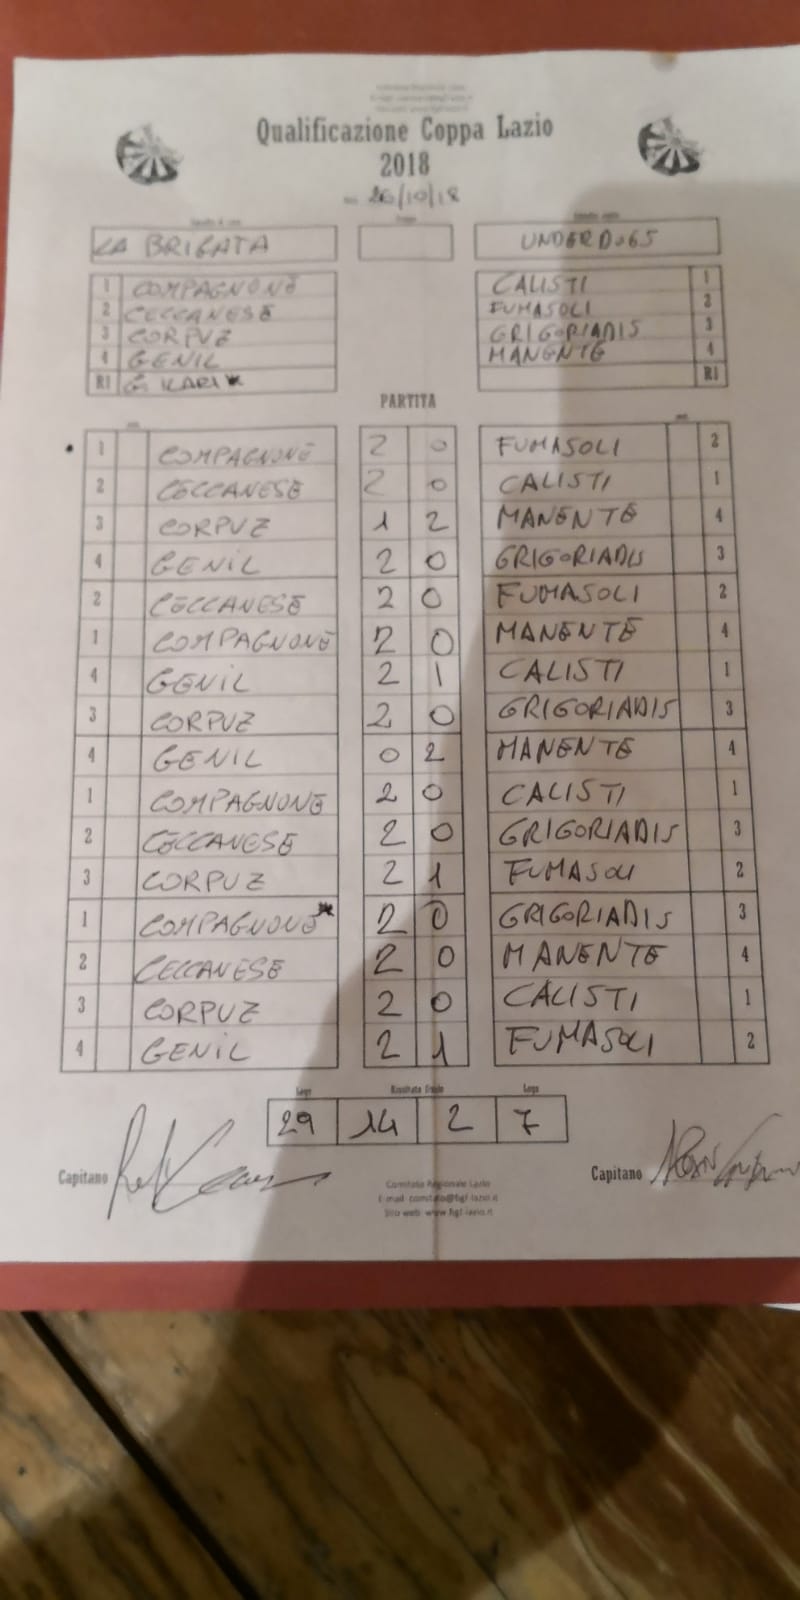 Qualificazione Coppa Lazio
2018
26/10/18
LA BRIGATA UNDERDOGS
1 COMPAGNONE CALISTI 1
2 CECCANESE FUMASOLI 2
3 CORPUZ GRIGORIADIS 3
4 GENIL MANENTE 4
R1 G. ILARI R1
PARTITA
1 COMPAGNONE 2 0 FUMASOLI 2
2 CECCANESE 2 0 CALISTI 1
3 CORPUZ 1 2 MANENTE 4
4 GENIL 2 0 GRIGORIADIS 3
2 CECCANESE 2 0 FUMASOLI 2
1 COMPAGNONE 2 0 MANENTE 4
4 GENIL 2 1 CALISTI 1
3 CORPUZ 2 0 GRIGORIADIS 3
4 GENIL 0 2 MANENTE 4
1 COMPAGNONE 2 0 CALISTI 1
2 CECCANESE 2 0 GRIGORIADIS 3
3 CORPUZ 2 1 FUMASOLI 2
1 COMPAGNONE 2 0 GRIGORIADIS 3
2 CECCANESE 2 0 MANENTE 4
3 CORPUZ 2 0 CALISTI 1
4 GENIL 2 1 FUMASOLI 2
Legs Risultato finale Legs
29 14 2 7
Capitano Capitano
Comitato Regionale Lazio
E-mail comitato@figf-lazio.it
Sito web www.figf-lazio.it